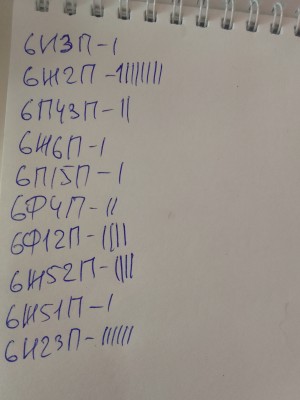 6И3П-I
6Ж2П-IIIIIIII
6П43П-II
6Ж6П-I
6П15П-I
6Ф4П-II
6Ф12П-IIII
6Ж52П-IIII
6Ж51П-I
6И23П-IIIIII